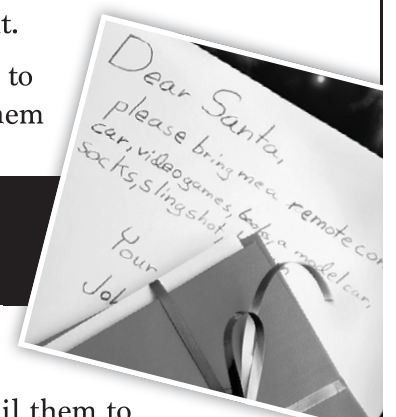 t.
to
nem
Dear Santa,
please bring me a remote con
car, videogames, books, a model car,
socks, slingshot,
Your
Jo
il them to